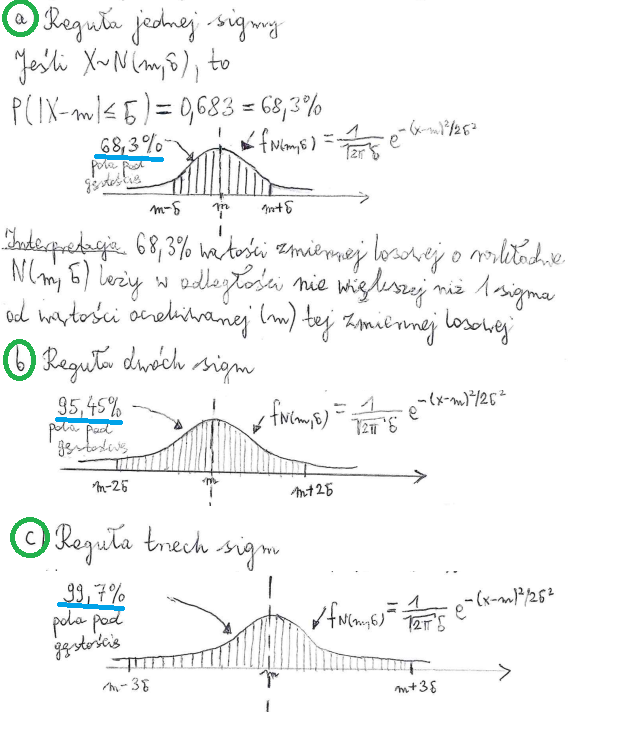 a) Reguła jednej sigmy
Jeśli X~N(m,δ), to
P(|X-m|≤δ) = 0,683 = 68,3%
68,3%
pola pod
gęstością
f N(m,δ) = 1/√2π δ e^-(x-m)²/2δ²
m-δ m m+δ
Interpretacja 68,3% wartości zmiennej losowej o rozkładzie
N(m, δ) leży w odległości nie większej niż 1 sigma
od wartości oczekiwanej (m) tej zmiennej losowej
b) Reguła dwóch sigm
95,45%
pola pod
gęstością
f N(m,δ) = 1/√2π δ e^-(x-m)²/2δ²
m-2δ m m+2δ
c) Reguła trzech sigm
99,7%
pola pod
gęstością
f N(m,δ) = 1/√2π δ e^-(x-m)²/2δ²
m-3δ m m+3δ